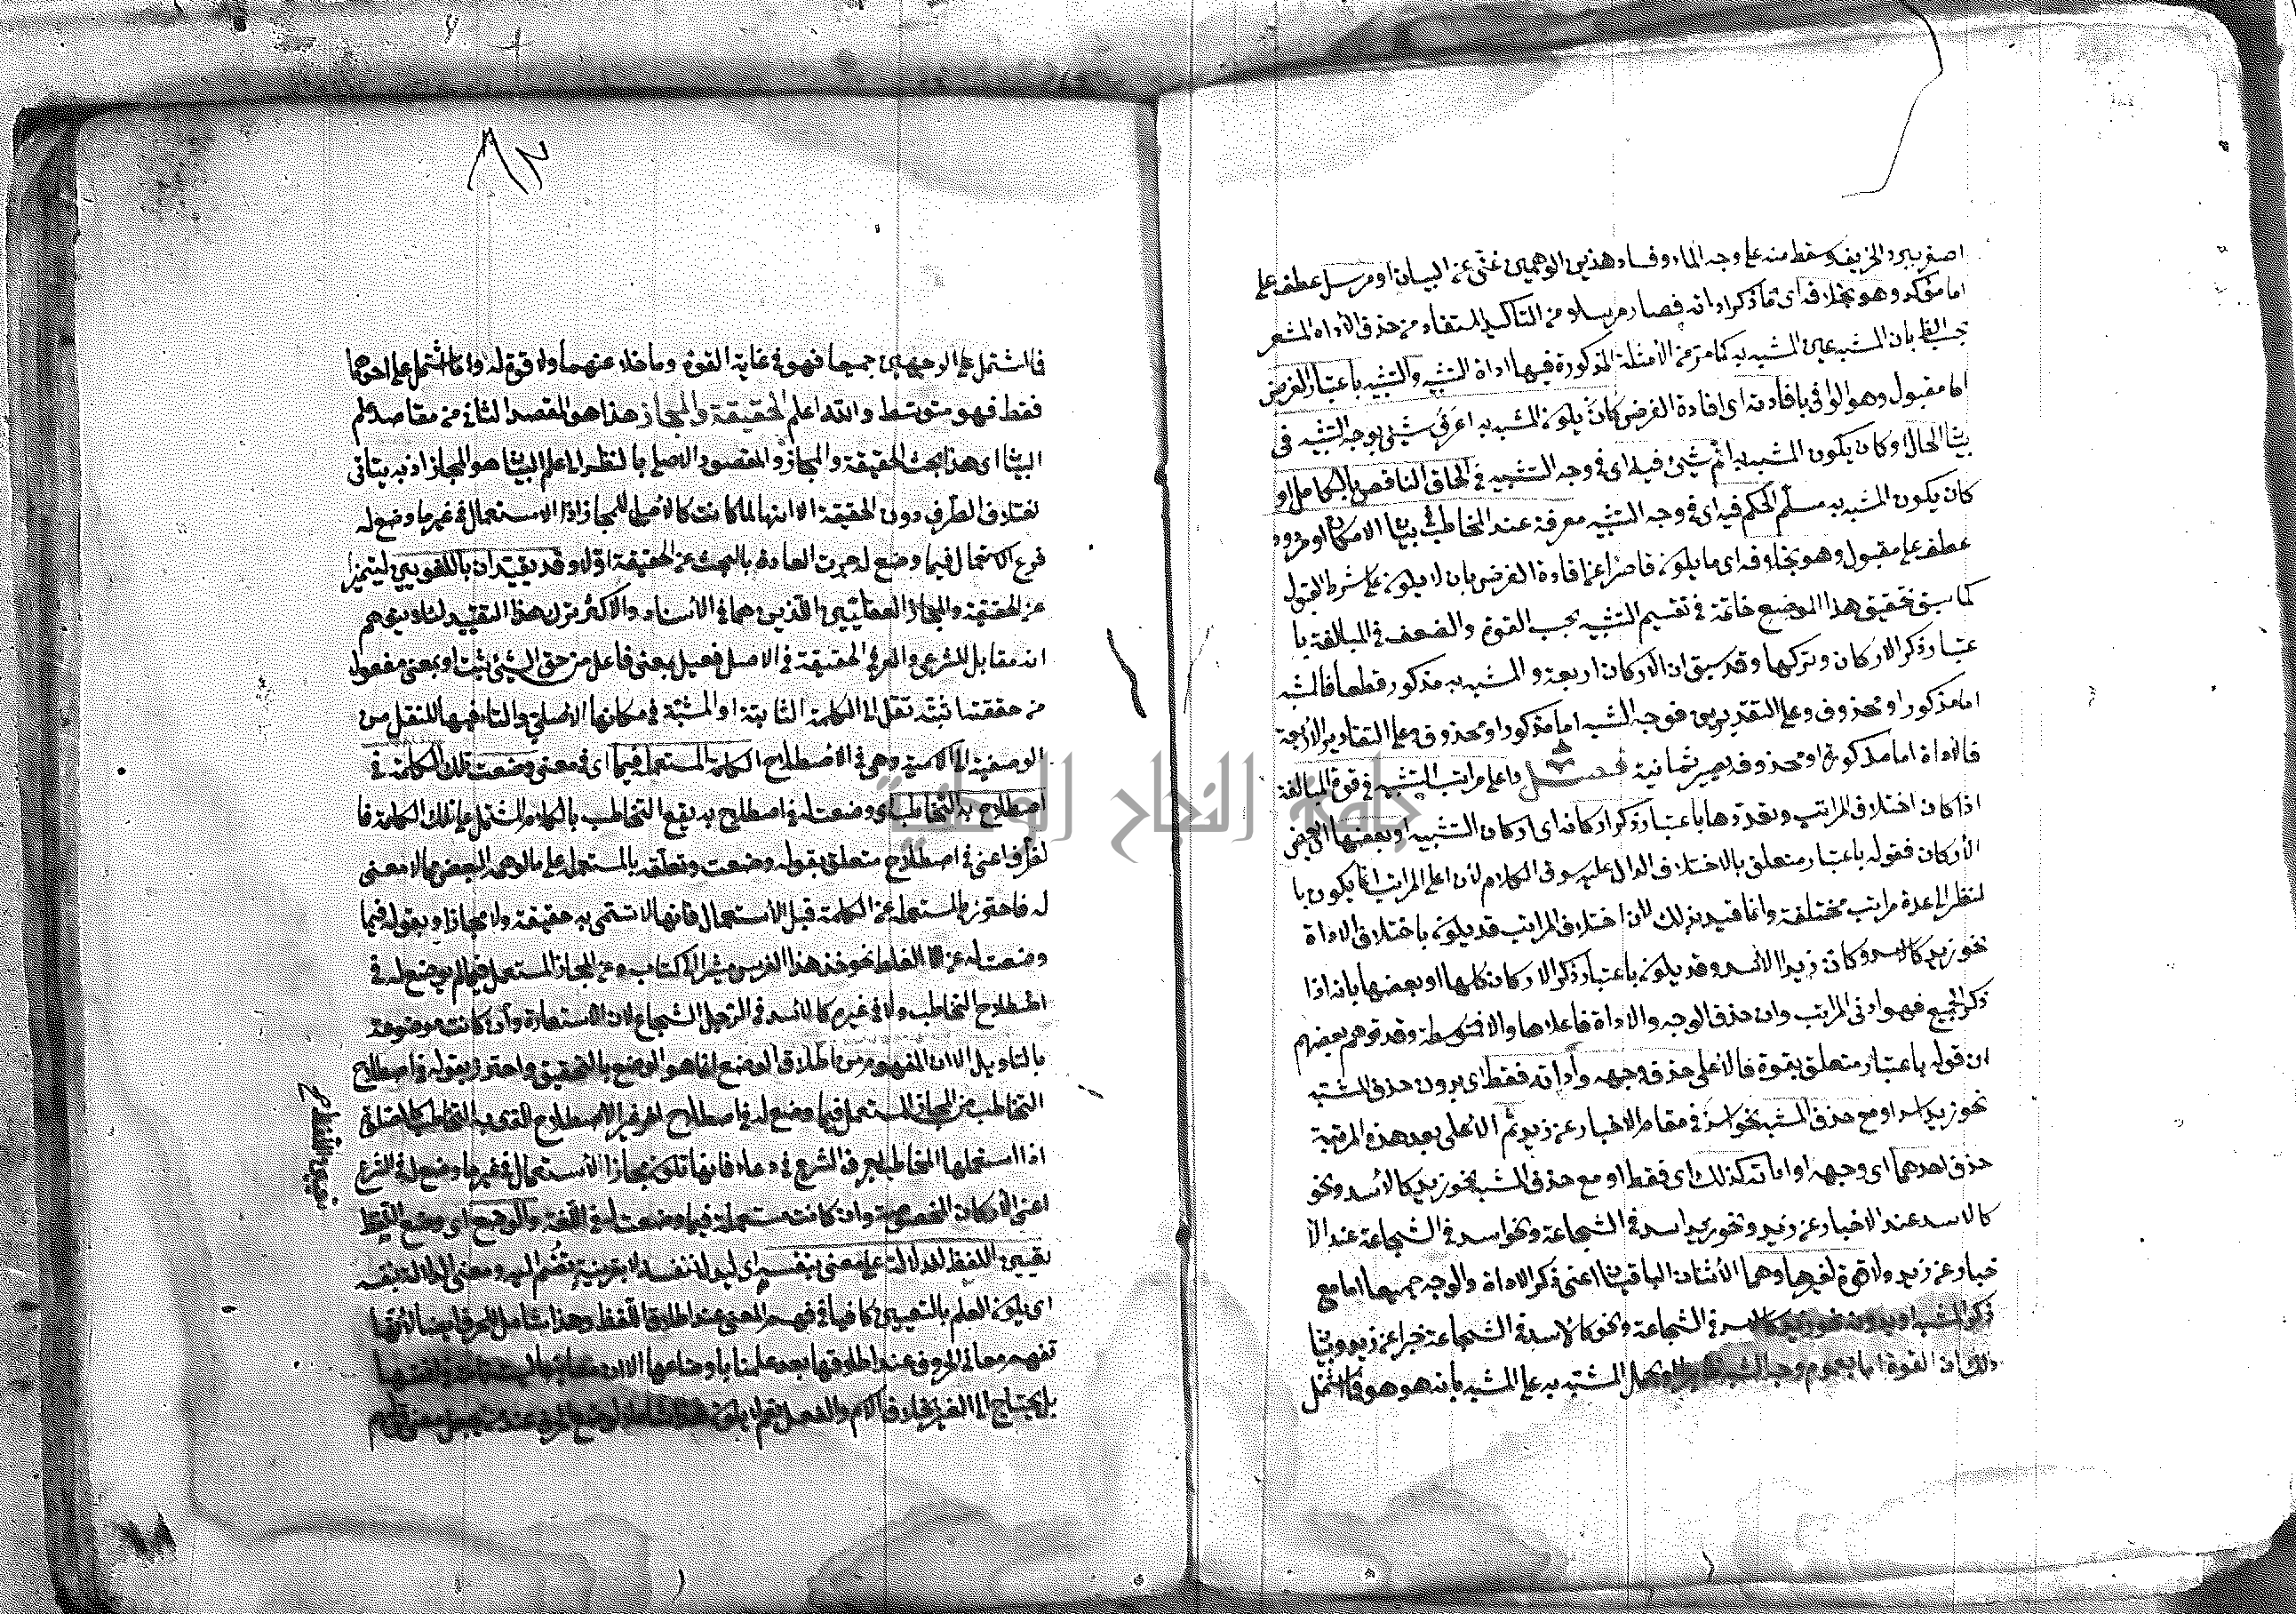 اصفر ببرد الخريف وسقط منه على وجه الماء وفساد هذين الوهمين غني عن البيان او مرسل عطف على
اما مؤكد وهو بخلافه اى ما ذكر اداته فصار مرسلا من التاكيد المستفاد من حذف الاداة المشعر
بحسب الظ بان المشبه عين المشبه به كما مر من الأمثلة المذكورة فيها اداة التشبيه والتشبيه باعتبار الغرض
اما مقبول وهو الوافى بافادته اى افادة الغرض كان يكون المشبه به اعرف شئ بوجه التشبيه فى
بيان الحال او كان يكون المشبه به اتم شئ فيه اى فى وجه التشبيه فى الحاق الناقص بالكامل او
كان يكون المشبه به مسلم الحكم فيه اى فى وجه التشبيه معرفة عند المخاطب فى بيان الامكان او مردود
عطف على مقبول وهو بخلافه اى ما يكون قاصرا عن افادة الغرض بان لا يكون على شرط القبول
كما سبق تحقيق هذا الموضع خاتمة فى تقسيم التشبيه بحسب القوة والضعف فى المبالغة با
عتبار ذكر الاركان وتركها وقد سبق ان الاركان اربعة والمشبه به مذكور قطعا فالمشبه
اما مذكور او محذوف وعلى التقديرين فوجه الشبه اما مذكور او محذوف وعلى التقادير الأربعة
فالاداة اما مذكورة او محذوفة يصير ثمانية فصل واعلى مراتب التشبيه فى قوة المبالغة
اذا كان اختلاف المراتب وتعددها باعتبار ذكر اركانه اى اركان التشبيه او بعضها اى بعض
الأركان فقوله باعتبار متعلق بالاختلاف الدال عليه سوق الكلام لأن اعلى المراتب انما يكون با
لنظر الى عدة مراتب مختلفة وانما قيد بذلك لان اختلاف المراتب قد يكون باختلاف الاداة
نحو زيد كالاسد وكان زيدا الأسد وقد يكون باعتبار ذكر الاركان كلها او بعضها بانه اذا
ذكر الجميع فهو ادنى المراتب وان حذف الوجه والاداة فاعلاها والا فمتوسطة وقد توهم بعضهم
ان قوله باعتبار متعلق بقوة فالأعلى حذف وجهه وأداته فقط اى بدون حذف المشبه
نحو زيد اسد او مع حذف المشبه نحو اسد فى مقام الاخبار عن زيد ثم الأعلى بعد هذه المرتبة
حذف احدهما اى وجهه او اداته كذلك اى فقط او مع حذف المشبه نحو زيد كالأسد ونحو
كالاسد عند الاخبار عن زيد ونحو زيد اسد فى الشجاعة ونحو اسد فى الشجاعة عند الأ
خبار عن زيد ولا قوة لغيرها وهما الأثنان الباقيان اعنى ذكر الاداة والوجه جميعا اما مع
ذكر المشبه او بدونه نحو زيد كالاسد فى الشجاعة ونحو كالاسد فى الشجاعة خبرا عن زيد وبيان
ذلك ان القوة اما بعموم وجه الشبه او بحمل المشبه به على المشبه بانه هو هو فما اشتمل
٨٢
فما اشتمل على الوجهين جميعا فهو فى غاية القوة وما خلا عنهما ولا قوة له وما اشتمل على احدهما
فقط فهو متوسط والله اعلم الحقيقة والمجاز هذا هو المقصد الثانى من مقاصد علم
البيان اى هذا بحث الحقيقة والمجاز والمقصود الاصلى بالنظر الى علم البيان هو المجاز اذ به يتاتى
اختلاف الطرف دون الحقيقة الا انها لما كانت كالاصل للمجاز اذ الاستعمال فى غير ما وضع له
فرع الاستعمال فيما وضع له جرت العادة بالبحث عن الحقيقة اولا وقد يقيدان باللغويين ليتميزا
عن الحقيقة والمجاز العقليين اللذين هما فى الأسناد والاكثر ترك هذا التقييد لئلا يتوهم
انه مقابل للشرعى والعرفى الحقيقة فى الاصل فعيل بمعنى فاعل من حق الشئ ثبت او بمعنى مفعول
من حققته اثبته نقل الى الكلمة الثابتة او المثبتة فى مكانها الأصلى والتاء فيها للنقل من
الوصفية الى الاسمية وهى فى الأصطلاح الكلمة المستعملة فيما اى فى معنى وضعت تلك الكلمة فى
اصطلاح به التخاطب اى وضعت له فى اصطلاح به يقع التخاطب بالكلام المشتمل على تلك الكلمة فا
لظرف اعنى فى اصطلاح متعلق بقوله وضعت وتعلقه بالمستعملة على ما توهمه البعض مما لا معنى
له فاحترز بالمستعملة عن الكلمة قبل الأستعمال فانها لا تسمى به حقيقة ولا مجازا وبقوله فيما
وضعت له عن الغلط نحو خذ هذا الفرس مشيرا الى كتاب وعن المجاز المستعمل فيما لم يوضع له فى
اصطلاح التخاطب ولا فى غيره كالأسد فى الرجل الشجاع لان الاستعارة وان كانت موضوعة
بالتاويل الا ان المفهوم من اطلاق الوضع انما هو الوضع بالتحقيق واحترز بقوله فى اصطلاح
التخاطب عن المجاز المستعمل فيما وضع له فى اصطلاح اخر غير الاصطلاح الذى به التخاطب كالصلوة
اذا استعملها المخاطب بعرف الشرع فى دعاء فانها تكون مجازا لأستعماله فى غير ما وضع له فى الشرع
اعنى الأركان المخصوصة وان كانت مستعملة فيما وضعت له فى اللغة والوضع اى وضع اللفظ
تعيين اللفظ للدلالة على معنى بنفسه اى ليدل بنفسه لا بقرينة تنضم اليه ومعنى الدلالة بنفسه
اى يكون العلم بالتعيين كافيا فى فهم المعنى عند اطلاق اللفظ وهذا شامل للحرف ايضا لانا
نفهم معانى الحروف عند اطلاقها بعد علمنا باوضاعها الا ان معانيها ليست تامة فى انفسها
بل يحتاج الى الغير بخلاف الاسم والفعل
جامعة النجاح الوطنية